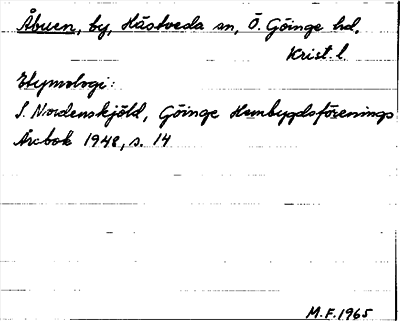 Åbuen, by, Hästveda sn, Ö. Göinge hd,
Krist. l.
Etymologi:
S. Nordenskjöld, Göinge Hembygdsförenings
Årsbok 1948, s. 14
M.F. 1965